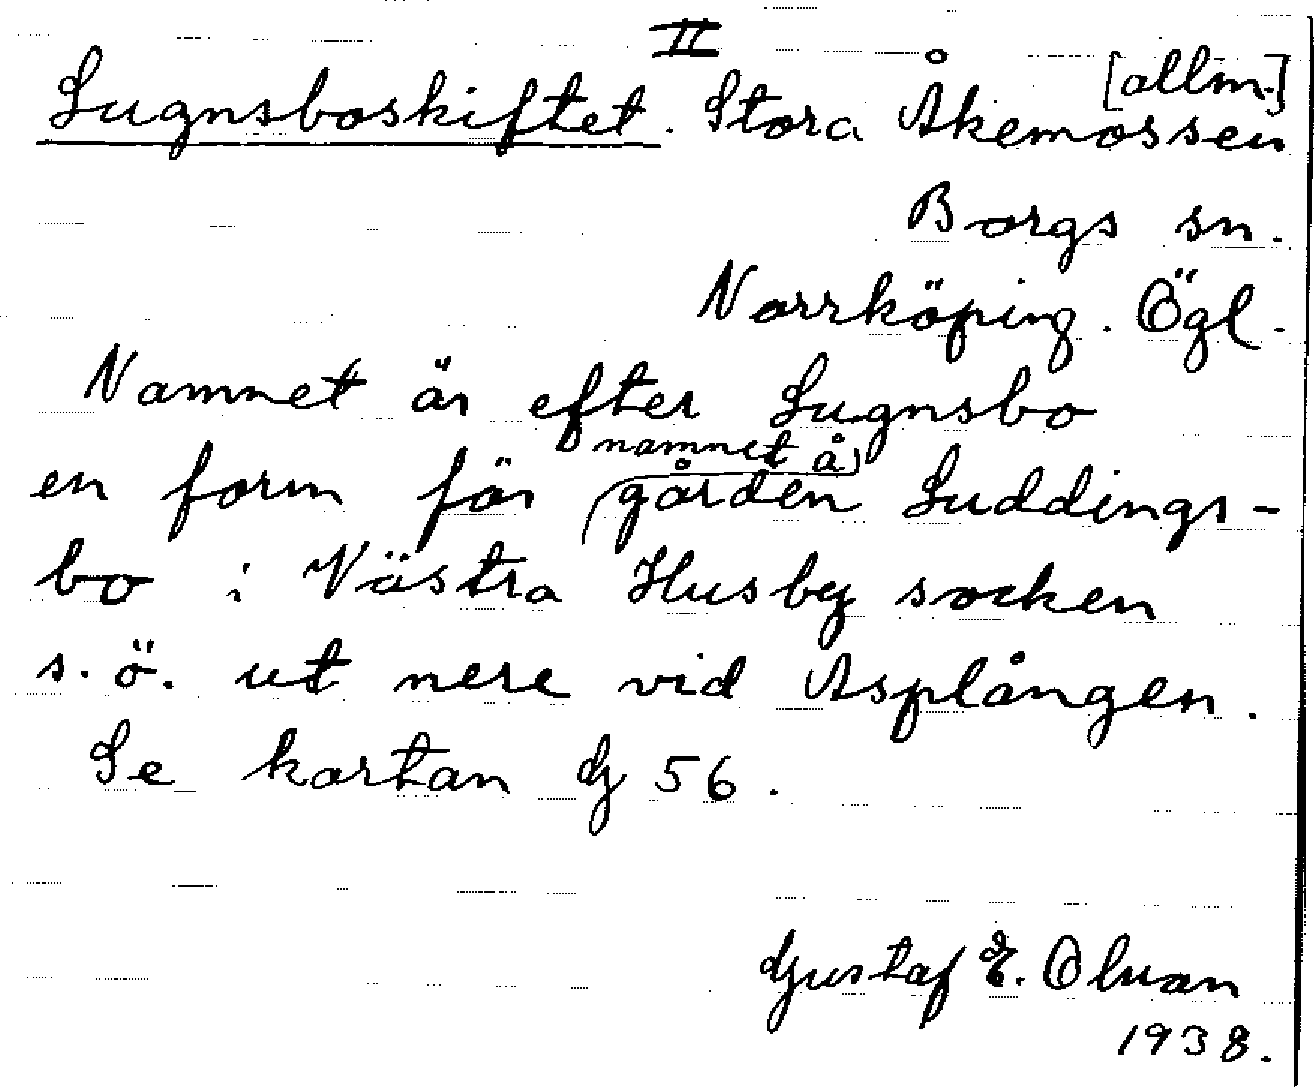 II
Lugnsboskiftet. Stora Åkemossen [allm.]
Borgs sn.
Norrköping. Ögl.
Namnet är efter Lugnsbo
en form för namnet å gården Luddings-
bo i Västra Husby socken
s.ö. ut nere vid Asplången.
Se kartan G 56.
Gustaf E.
1938.